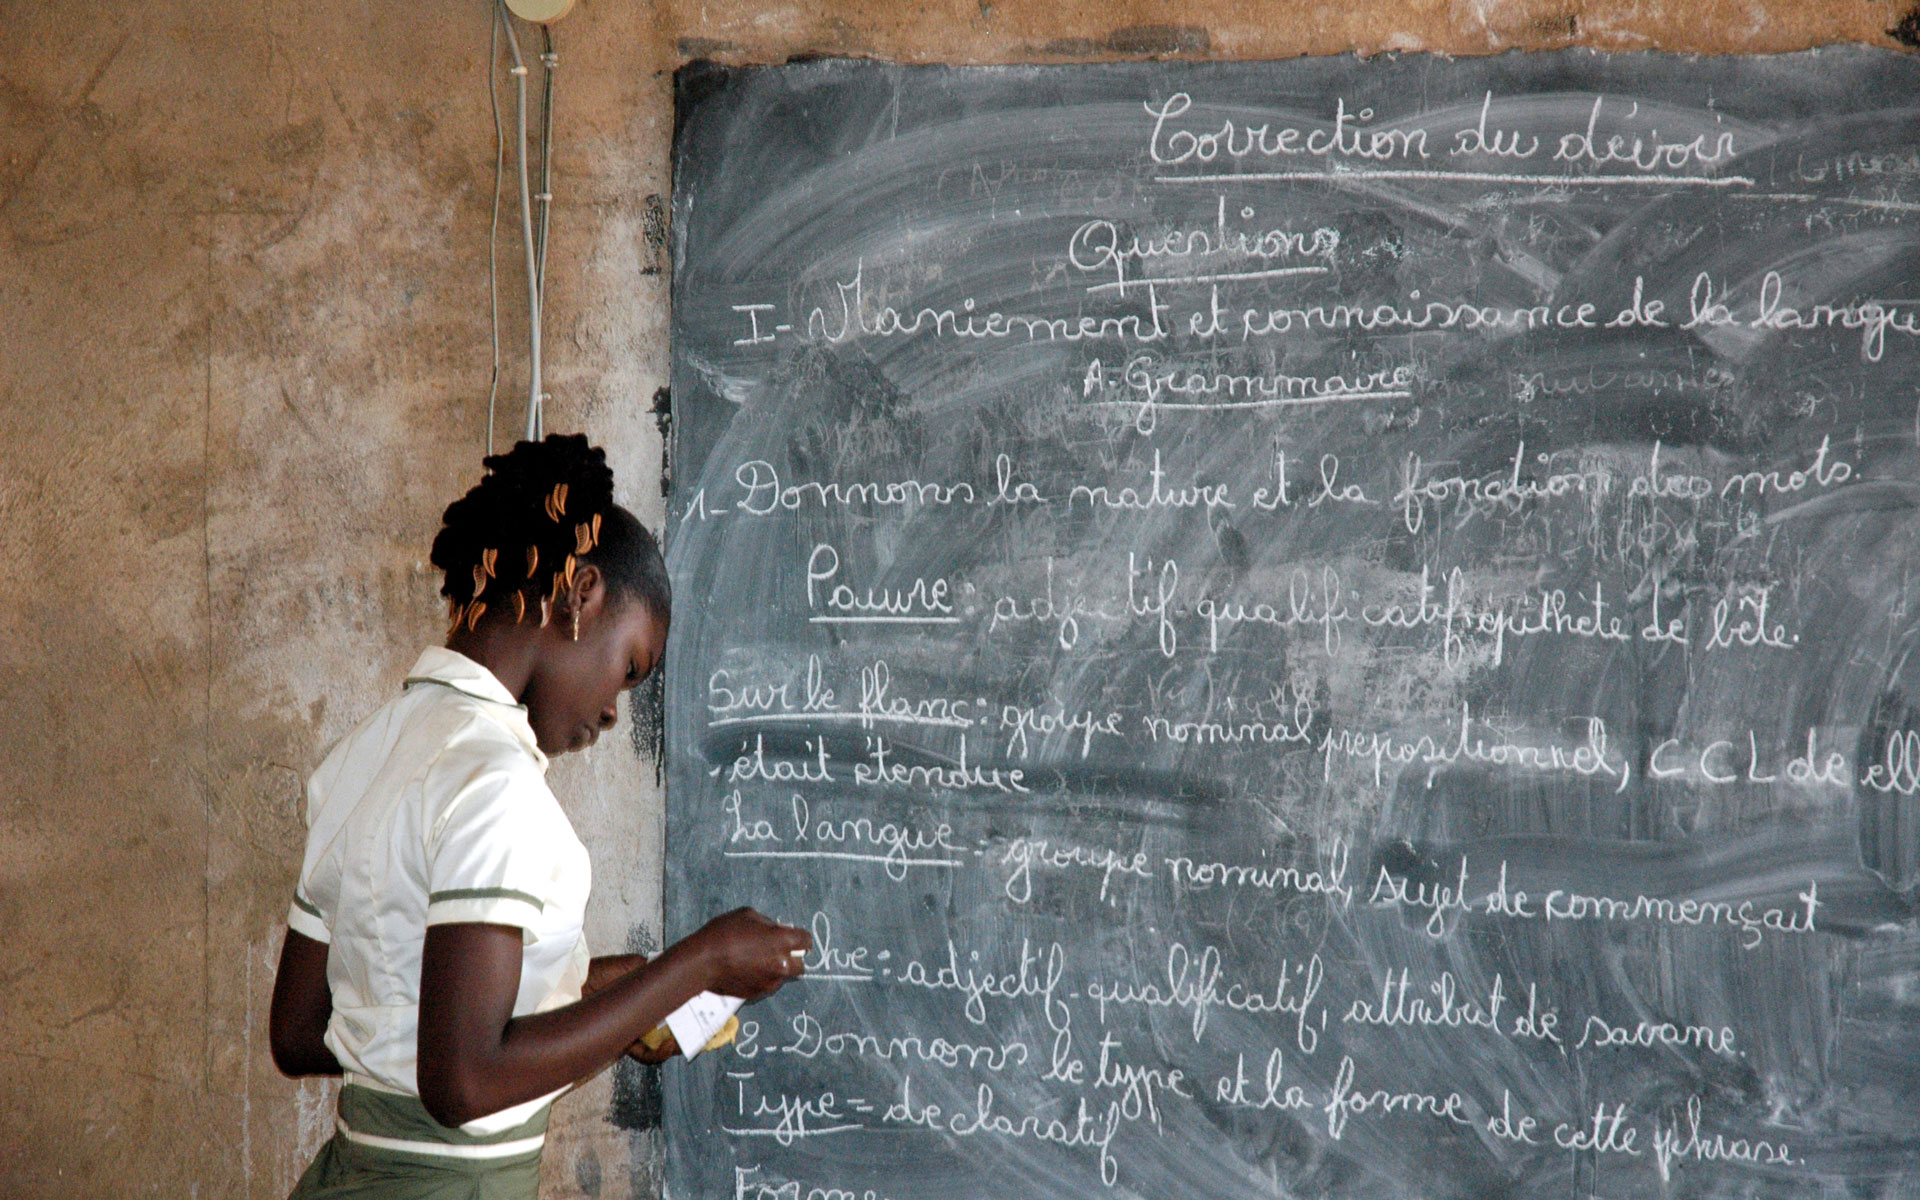 Correction du dévoir
Questions
I- Maniement et connaissance de la langue
A-Grammaire
1- Donnons la nature et la fonction des mots.
Pauvre : adjectif qualificatif, épithète de bête.
Sur le flanc : groupe nominal prepositionnel, CCL de ell
était étendue
La langue : groupe nominal, sujet de commençait
adjectif-qualificatif, attribut de savane.
2- Donnons le type et la forme de cette phrase.
Type = declaratif
Forme